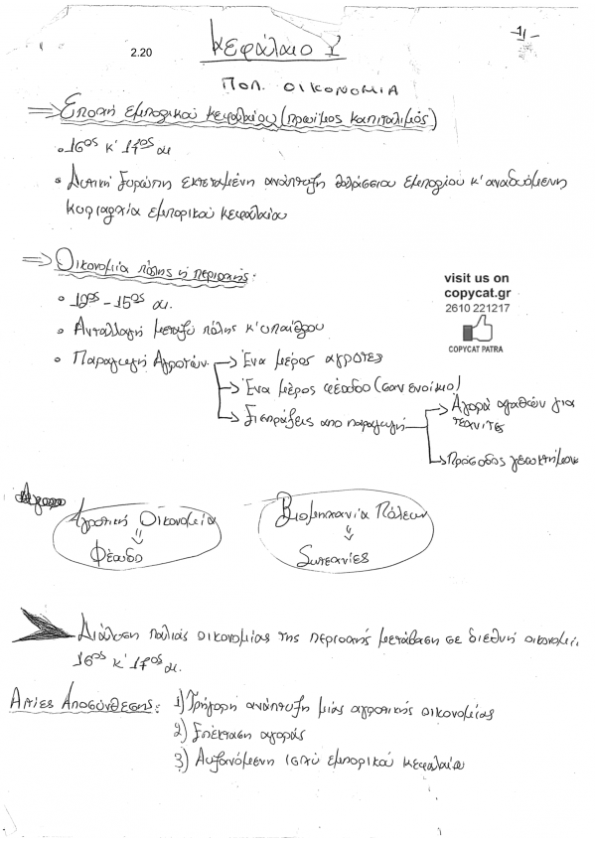 -1-
2.20
Κεφάλαιο 1
ΠΟΛ. ΟΙΚΟΝΟΜΙΑ
⇒ Εποχή εμπορικού κεφαλαίου (πρώιμος καπιταλισμός)
• 16ος κ' 17ος αι.
• Δυτική Ευρώπη εκτεταμένη ανάπτυξη θαλάσσιου εμπορίου κ' αναδυόμενη
κυριαρχία εμπορικού κεφαλαίου
⇒ Οικονομία πόλης ή περιοχής:
visit us on
copycat.gr
2610 221217
COPYCAT PATRA
• 12ος - 15ος αι.
• Ανταλλαγή μεταξύ πόλης κ' υπαίθρου
• Παραγωγή Αγροτών → Ένα μέρος αγρότες
→ Ένα μέρος φέουδο (σαν ενοίκιο)
→ Εισπράξεις απο παραγωγή → Αγορά αγαθών για
τεχνίτες
→ Πρόσοδος γαιοκτήμον
Αγροτική Οικονομεία
⇓
Φέουδο
Βιομηχανία Πόλεων
⇓
Συντεχνίες
Διάλυση παλιάς οικονομίας της περιοχής μετάβαση σε διεθνή οικονομι.
16ος κ' 17ος αι.
Αιτίες Αποσύνθεσης: 1) Γρήγορη ανάπτυξη μιας αγροτικής οικονομίας
2) Επέκταση αγοράς
3) Αυξανόμενη ισχύ εμπορικού κεφαλαίο